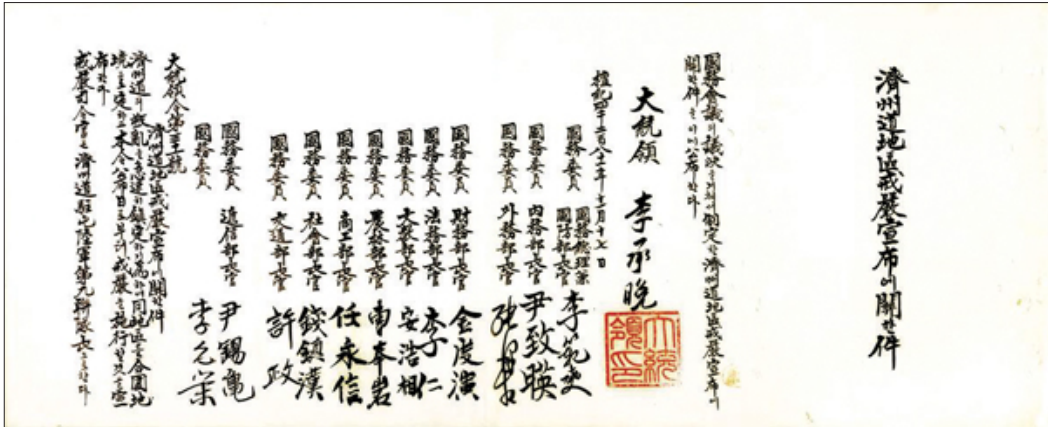 濟州道地區戒嚴宣布에關한件
國務會議의議決을거쳐서制定한濟州道地區戒嚴宣布에
關한件을이에公布한다
大統領 李承晩
大統領印
檀紀四千二百八十一年十一月十七日
國務委員 國務總理兼國防部長官 李範奭
國務委員 內務部長官 尹致暎
國務委員 外務部長官
國務委員 財務部長官 金度演
國務委員 法務部長官 李仁
國務委員 文敎部長官 安浩相
國務委員 農林部長官
國務委員 商工部長官 任永信
國務委員 社會部長官 錢鎭漢
國務委員 交通部長官 許政
國務委員 遞信部長官 尹錫龜
國務委員 李允榮
大統領令第三十一號
濟州道地區戒嚴宣布에關한件
濟州道의叛亂을急速히鎭定하기爲하야同地區를合圍地
境으로定하고本令公布日로부터戒嚴을施行할것을宣
布한다
戒嚴司令官은濟州道駐屯陸軍第九聯隊長으로한다